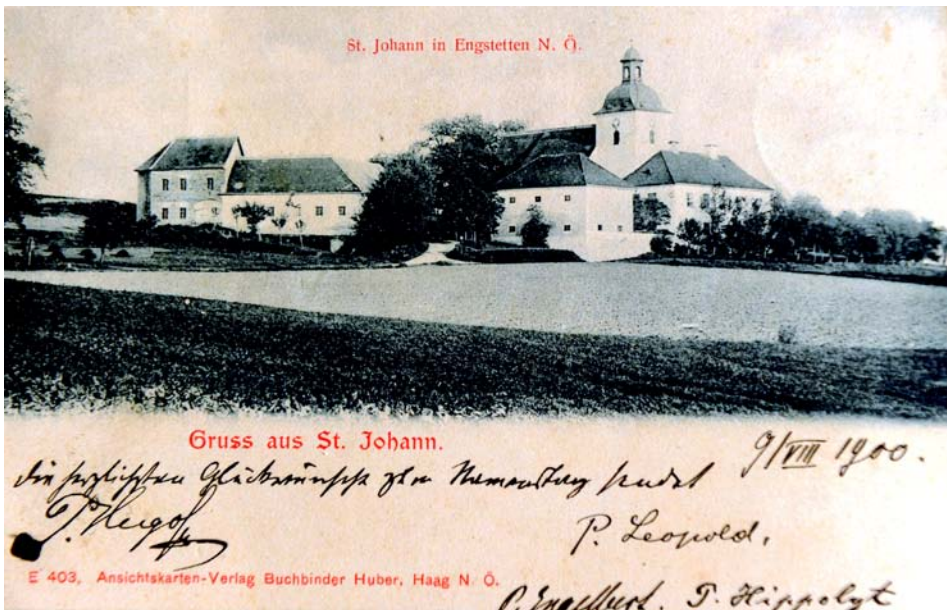 St. Johann in Engstetten N. Ö.
Gruss aus St. Johann.
9/VIII 1900.
die herzlichsten Glückwünsche zum Namenstag sendet
P. Hugo
P. Leopold,
E 403, Ansichtskarten-Verlag Buchbinder Huber, Haag N. Ö.
P. Engelbert. P. Hippolyt